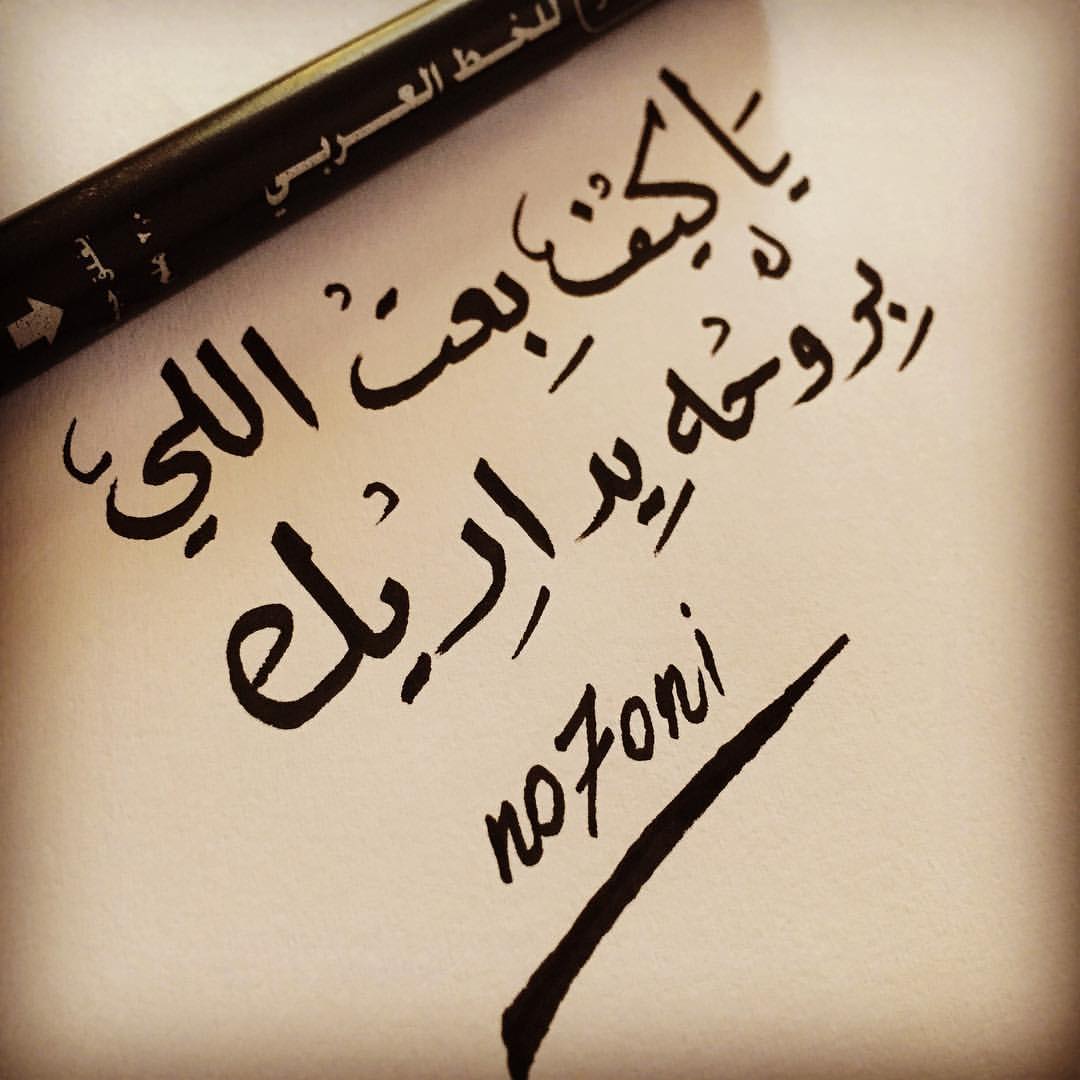 للخط العربي
يَا كيْف بِعتْ اللي
بِروُحْه يِدارِيْك
no7oni